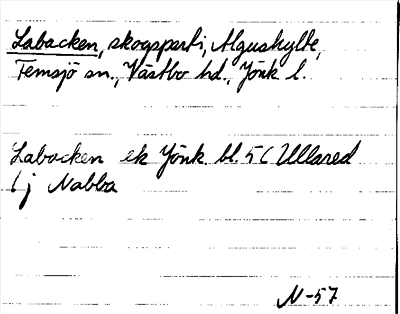 Labacken, skogsparti, Älgushylte,
Femsjö sn., Västbo hd., Jönk l.
Labacken ek Jönk. bl. 56 Ullared
1 j Nabba
N-57